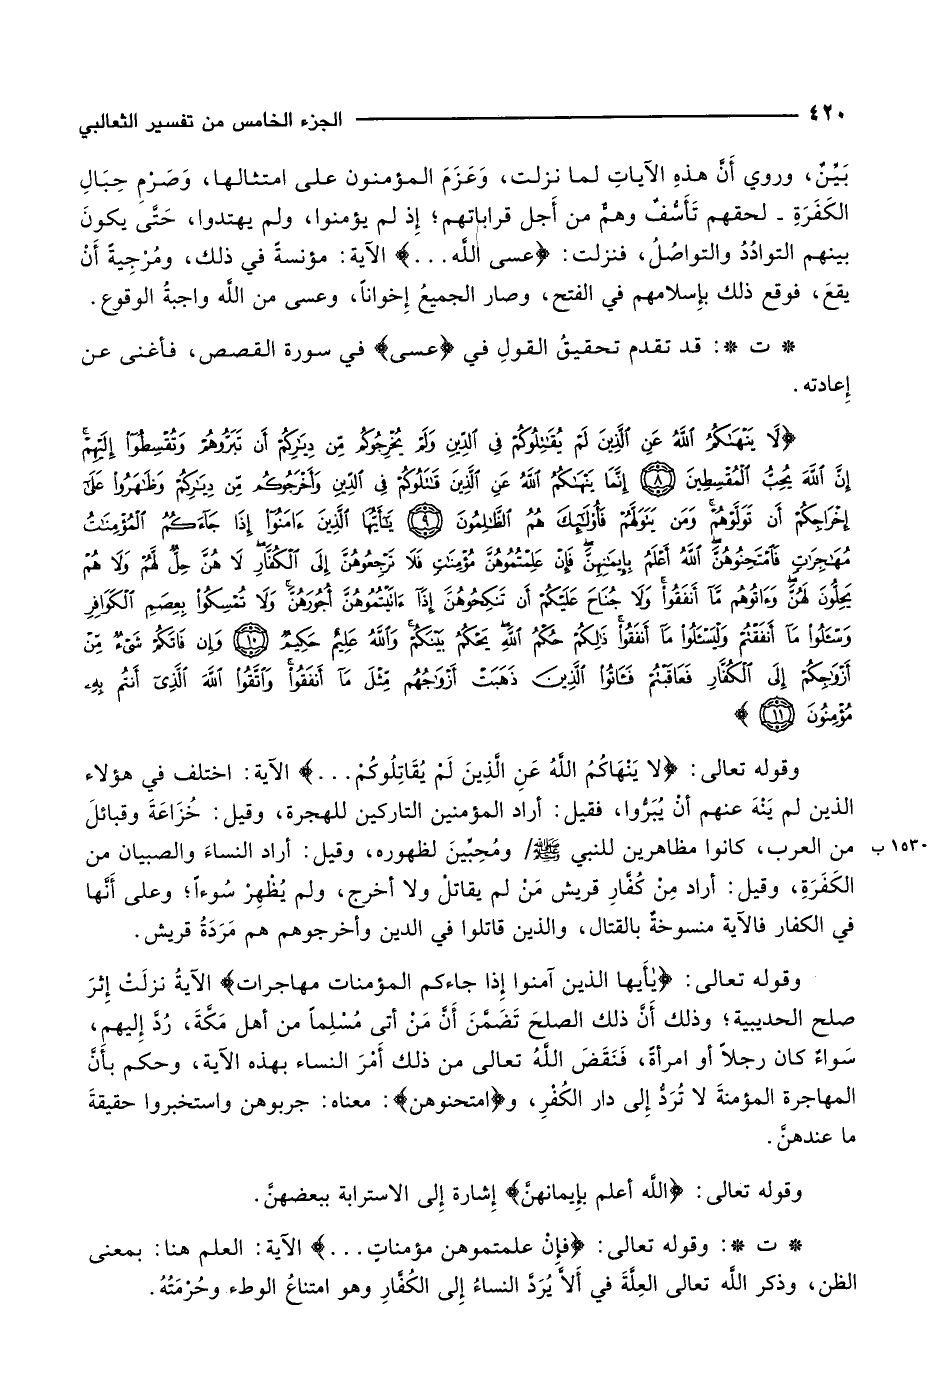 ٤٢٠ ــــــــــــ الجزء الخامس من تفسير الثعالبي
بَيِّنٌ، وروي أَنَّ هذهِ الآياتِ لما نزلت، وَعَزَمَ المؤمنون على امتثالها، وَصَرْمِ حِبَالِ
الكَفَرَةِ ـ لحقهم تَأَسُّفٌ وهمٌّ من أجل قراباتهم؛ إذ لم يؤمنوا، ولم يهتدوا، حَتَّى يكونَ
بينهم التوادُدُ والتواصُلُ، فنزلت: ﴿عسى اللَّه...﴾ الآية: مؤنسةً في ذلك، ومُرْجِيةً أَنْ
يقعَ، فوقع ذلك بإِسلامهم في الفتح، وصار الجميعُ إخواناً، وعسى من اللَّه واجبةُ الوقوع.
* ت *: قد تقدم تحقيقُ القولِ في ﴿عسى﴾ في سورة القصص، فأغنى عن
إعادته.
﴿لَا يَنْهَىٰكُمُ ٱللَّهُ عَنِ ٱلَّذِينَ لَمْ يُقَٰتِلُوكُمْ فِى ٱلدِّينِ وَلَمْ يُخْرِجُوكُم مِّن دِيَٰرِكُمْ أَن تَبَرُّوهُمْ وَتُقْسِطُوٓا۟ إِلَيْهِمْ ۚ
إِنَّ ٱللَّهَ يُحِبُّ ٱلْمُقْسِطِينَ ﴿٨﴾ إِنَّمَا يَنْهَىٰكُمُ ٱللَّهُ عَنِ ٱلَّذِينَ قَٰتَلُوكُمْ فِى ٱلدِّينِ وَأَخْرَجُوكُم مِّن دِيَٰرِكُمْ وَظَٰهَرُوا۟ عَلَىٰٓ
إِخْرَاجِكُمْ أَن تَوَلَّوْهُمْ ۚ وَمَن يَتَوَلَّهُمْ فَأُو۟لَٰٓئِكَ هُمُ ٱلظَّٰلِمُونَ ﴿٩﴾ يَٰٓأَيُّهَا ٱلَّذِينَ ءَامَنُوٓا۟ إِذَا جَآءَكُمُ ٱلْمُؤْمِنَٰتُ
مُهَٰجِرَٰتٍ فَٱمْتَحِنُوهُنَّ ۖ ٱللَّهُ أَعْلَمُ بِإِيمَٰنِهِنَّ ۖ فَإِنْ عَلِمْتُمُوهُنَّ مُؤْمِنَٰتٍ فَلَا تَرْجِعُوهُنَّ إِلَى ٱلْكُفَّارِ ۖ لَا هُنَّ حِلٌّ لَّهُمْ وَلَا هُمْ
يَحِلُّونَ لَهُنَّ ۖ وَءَاتُوهُم مَّآ أَنفَقُوا۟ ۚ وَلَا جُنَاحَ عَلَيْكُمْ أَن تَنكِحُوهُنَّ إِذَآ ءَاتَيْتُمُوهُنَّ أُجُورَهُنَّ ۚ وَلَا تُمْسِكُوا۟ بِعِصَمِ ٱلْكَوَافِرِ
وَسْـَٔلُوا۟ مَآ أَنفَقْتُمْ وَلْيَسْـَٔلُوا۟ مَآ أَنفَقُوا۟ ۚ ذَٰلِكُمْ حُكْمُ ٱللَّهِ ۖ يَحْكُمُ بَيْنَكُمْ ۚ وَٱللَّهُ عَلِيمٌ حَكِيمٌ ﴿١٠﴾ وَإِن فَاتَكُمْ شَىْءٌ مِّنْ
أَزْوَٰجِكُمْ إِلَى ٱلْكُفَّارِ فَعَاقَبْتُمْ فَـَٔاتُوا۟ ٱلَّذِينَ ذَهَبَتْ أَزْوَٰجُهُم مِّثْلَ مَآ أَنفَقُوا۟ ۚ وَٱتَّقُوا۟ ٱللَّهَ ٱلَّذِىٓ أَنتُم بِهِۦ
مُؤْمِنُونَ ﴿١١﴾﴾
وقوله تعالى: ﴿لا يَنْهَاكُمُ اللَّهُ عَنِ الَّذِينَ لَمْ يُقَاتِلُوكُمْ...﴾ الآية: اختلف في هؤلاء
الذين لم يَنْهَ عنهم أنْ يُبَرُّوا، فقيل: أراد المؤمنين التاركين للهجرة، وقيل: خُزَاعَةَ وقبائلَ
من العرب، كانوا مظاهرين للنبي ﷺ/ ومُحِبِّينَ لظهوره، وقيل: أراد النساءَ والصبيان من ١٥٣٠ ب
الكَفَرَةِ، وقيل: أراد مِنْ كُفَّارِ قريش مَنْ لم يقاتلْ ولا أخرج، ولم يُظْهِرْ سُوءاً؛ وعلى أَنَّها
في الكفار فالآية منسوخةٌ بالقتال، والذين قاتلوا في الدين وأخرجوهم هم مَرَدَةُ قريش.
وقوله تعالى: ﴿يٰأيها الذين آمنوا إذا جاءكم المؤمنات مهاجرات﴾ الآيةُ نزلَتْ إثرَ
صلح الحديبية؛ وذلك أَنَّ ذلك الصلحَ تَضَمَّنَ أَنَّ مَنْ أتى مُسْلِماً من أهل مَكَّةَ، رُدَّ إليهم،
سَواءً كان رجلاً أو امرأةً، فَنَقَضَ اللَّهُ تعالى من ذلك أَمْرَ النساء بهذه الآية، وحكم بأنَّ
المهاجرة المؤمنةَ لا تُرَدُّ إلى دار الكُفْرِ، و﴿امتحنوهن﴾: معناه: جربوهن واستخبروا حقيقةَ
ما عندهنَّ.
وقوله تعالى: ﴿اللَّه أعلم بإيمانهنَّ﴾ إشارة إلى الاسترابة ببعضهنَّ.
* ت *: وقوله تعالى: ﴿فإنْ علمتموهن مؤمناتٍ...﴾ الآية: العلم هنا: بمعنى
الظن، وذكر اللَّه تعالى العِلَّةَ في أَلاَّ يُرَدَّ النساءُ إلى الكُفَّارِ وهو امتناعُ الوطء وحُرْمَتُهُ.